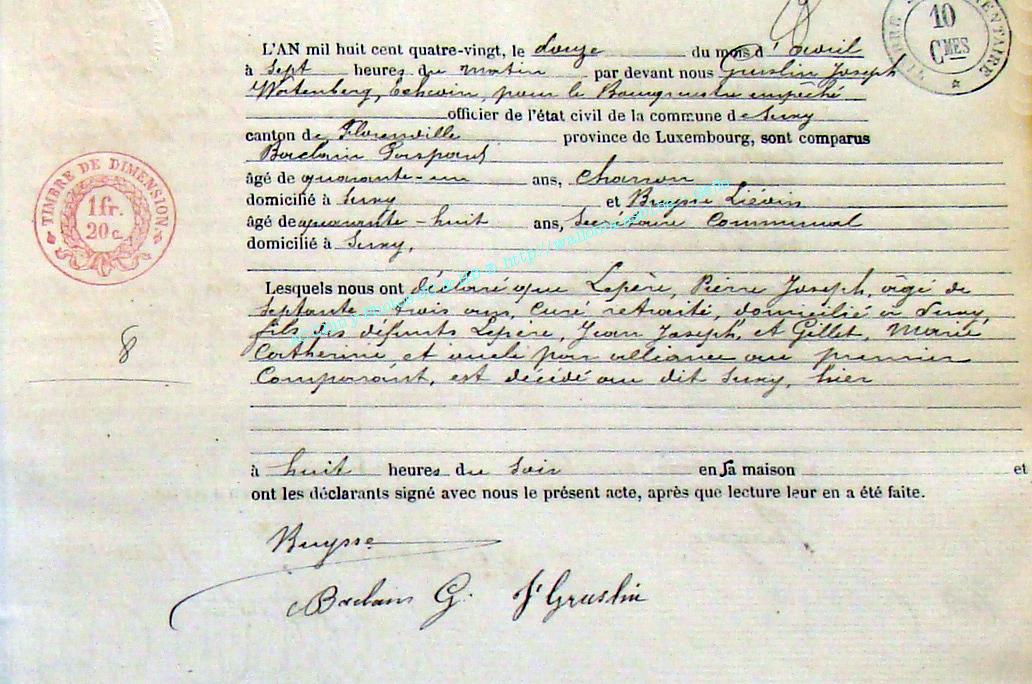 TIMBRE
10
CMES
L'AN mil huit cent quatre-vingt, le douze du mois d'avril
à sept heures du matin par devant nous Gruslin Joseph
Watenberg, Echevin, pour le Bourgmestre empêché
officier de l'état civil de la commune de Suxy
canton de Florenville province de Luxembourg, sont comparus
Baclain Gaspard
âgé de quarante-un ans, charron
domicilié à Suxy et Buysse Liévin
âgé de quarante-huit ans, Secrétaire Communal
domicilié à Suxy,
TIMBRE DE DIMENSION
1 fr.
20 c.
Lesquels nous ont déclaré que Lepère, Pierre Joseph, âgé de
Septante-trois ans, Curé retraité, domicilié à Suxy,
fils des défunts Lepère, Jean Joseph, et Gillet, Marie
Catherine et oncle par alliance au premier
Comparant, est décédé au dit Suxy, hier
8
à huit heures du soir en sa maison et
ont les déclarants signé avec nous le présent acte, après que lecture leur en a été faite.
Buysse
Baclain G. J Gruslin